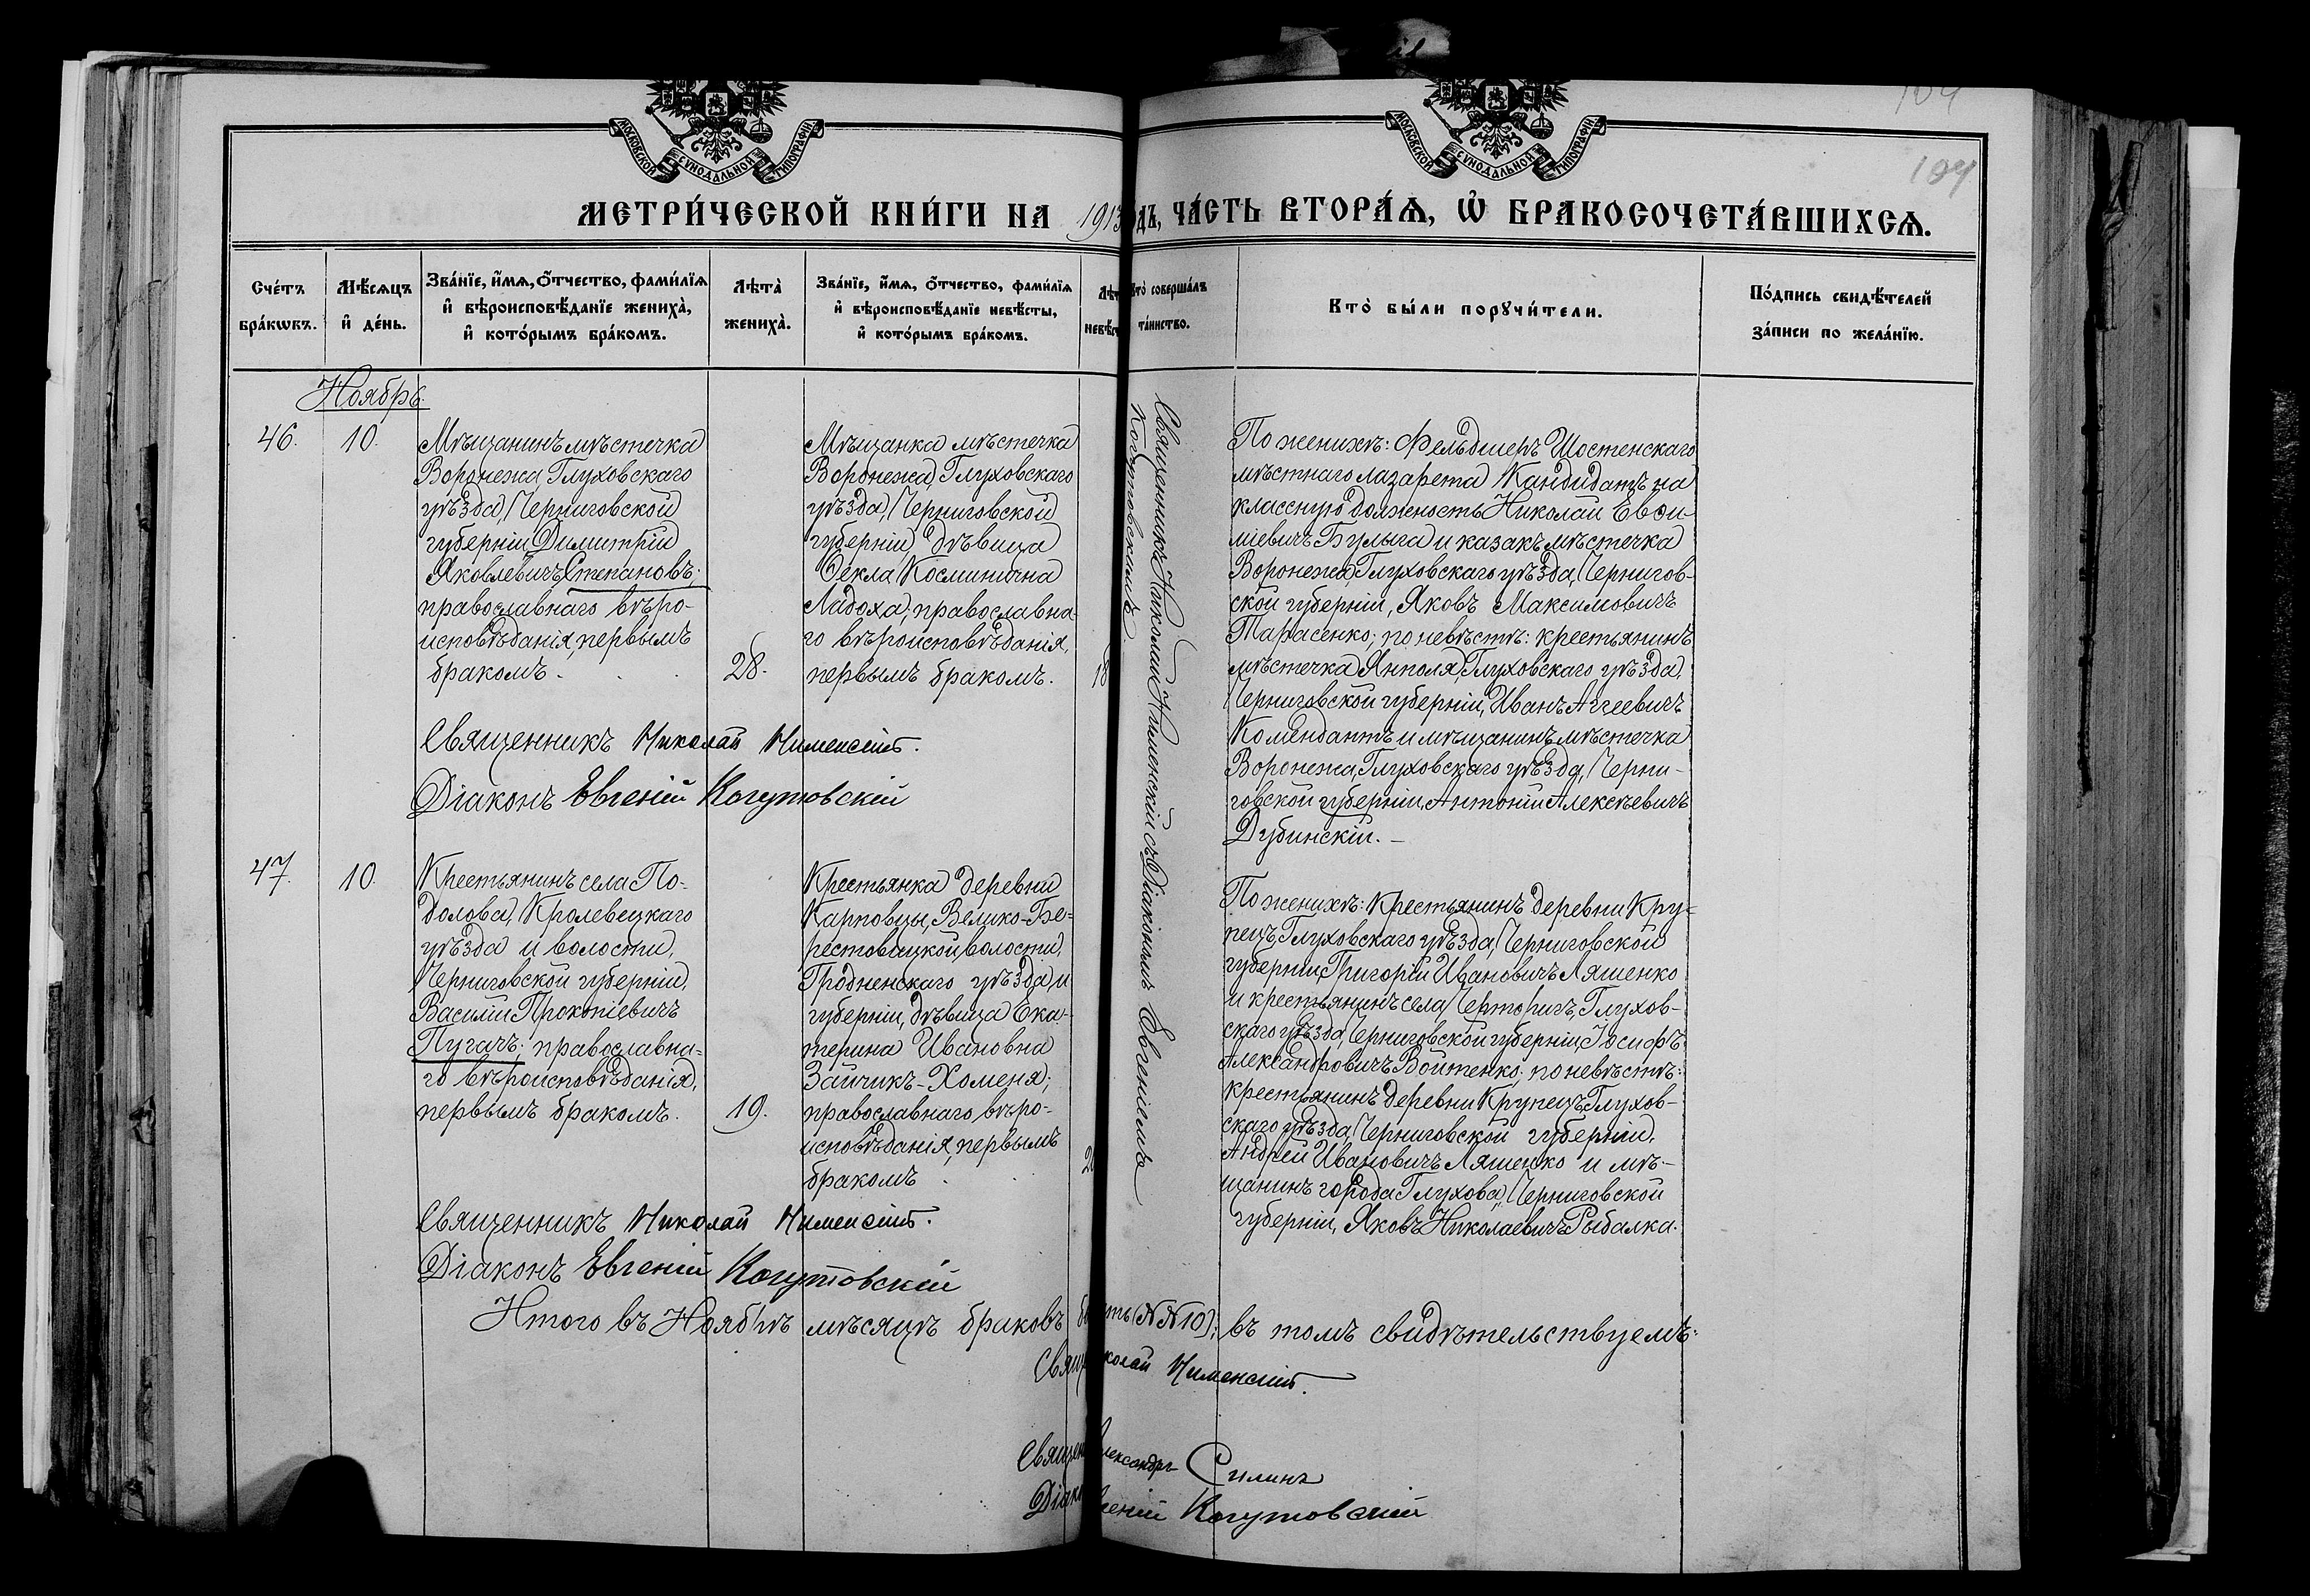 МОСКОВСКОЙ СѴНОДАЛЬНОЙ ТИПОГРАФІИ
МОСКОВСКОЙ СѴНОДАЛЬНОЙ ТИПОГРАФІИ
104
104
МЕТРИ́ЧЕСКОЙ КНИ́ГИ НА 1913 ГОДЪ, ЧА́СТЬ ВТОРА́Ѧ, Ѡ҆ БРАКОСОЧЕТА́ВШИХСѦ.
Сче́тъ
бра́кѡвъ.
Мѣ́сѧцъ
и҆ де́нь.
Зва́нїе, и҆́мѧ, ѻ҆́тчество, фами́лїѧ
и҆ вѣроисповѣ́данїе жениха̀,
и҆ кото́рымъ бра́комъ.
Лѣта̀
жениха̀.
Зва́нїе, и҆́мѧ, ѻ҆́тчество, фами́лїѧ
и҆ вѣроисповѣ́данїе невѣ́сты,
и҆ кото́рымъ бра́комъ.
Кто̀ соверша́лъ
та́инство.
Кто̀ бы́ли порꙋчи́тели.
По́дпись свидѣ́телей
за́писи по жела́нїю.
Ноябрь.
46.
10.
Мѣщанинъ мѣстечка
Воронежа, Глуховскаго
уѣзда, Черниговской
губерніи Димитрій
Яковлевичъ Степановъ;
православнаго вѣро-
исповѣданія, первымъ
бракомъ.
28.
Мѣщанка мѣстечка
Воронежа, Глуховскаго
уѣзда, Черниговской
губерніи, дѣвица
Ѳекла Космінична
Ладоха, православна-
го вѣроисповѣданія,
первымъ бракомъ.
18
Священникъ Николай Нименскій съ Діакономъ Евгеніемъ
Когутовскимъ.
По женихѣ: Фельдшеръ Шостенскаго
мѣстнаго лазарета Кандидатъ на
классную должность Николай Евѳи-
міевичъ Булыга и казакъ мѣстечка
Воронежа, Глуховскаго уѣзда, Чернигов-
ской губерніи, Яковъ Максимовичъ
Тарасенко; по невѣстѣ: крестьянинъ
мѣстечка Янполя, Глуховскаго уѣзда,
Черниговской губерніи, Иванъ Аггеевичъ
Комендантъ и мѣщанинъ мѣстечка
Воронежа, Глуховскаго уѣзда, Черни-
говской губерніи, Антоній Алексѣевичъ
Дубинскій. –
Священникъ Николай Нименскій.
Діаконъ Евгеній Когутовскій
47.
10.
Крестьянинъ села По-
долова, Кролевецкаго
уѣзда и волости,
Черниговской губерніи,
Василій Прокопіевичъ
Пугачъ; православна-
го вѣроисповѣданія,
первымъ бракомъ.
19.
Крестьянка деревни
Карповцы, Велико-Бе-
рестовицкой волости,
Гродненскаго уѣзда и
губерніи, дѣвица Ека-
терина Ивановна
Зайчикъ-Хоменя;
православнаго вѣро-
исповѣданія, первымъ
бракомъ.
По женихѣ: Крестьянинъ деревни Кру-
пецъ Глуховскаго уѣзда, Черниговской
губерніи, Григорій Ивановичъ Ляшенко
и крестьянинъ села Черторигъ, Глухов-
скаго уѣзда, Черниговской губерніи, Іосифъ
Александровичъ Войтенко; по невѣстѣ:
крестьянинъ деревни Крупецъ Глухов-
скаго уѣзда, Черниговской губерніи,
Андрей Ивановичъ Ляшенко и мѣ-
щанинъ города Глухова, Черниговской
губерніи, Яковъ Николаевичъ Рыбалка.
Священникъ Николай Нименскій.
Діаконъ Евгеній Когутовскій
Итого въ Ноябрѣ мѣсяцѣ браковъ (№№ 10); въ томъ свидѣтельствуемъ:
Нименскій.
Силинъ
Когутовскій